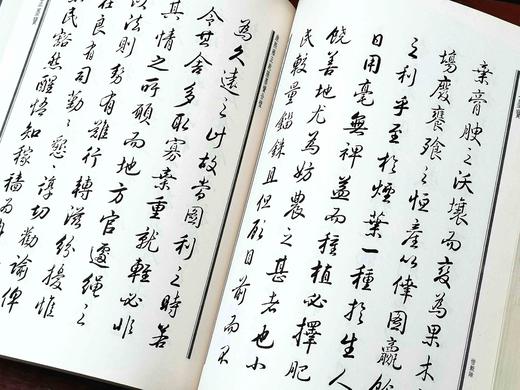 棄膏腴之沃壤而變為果木
場廢饔飧之恒產以倖圖贏餘
之利乎至於煙葉一種於生人
日用毫無裨益而種植必擇肥
饒善地尤為妨農之甚者也小
民較量錙銖且但顧目前而不
為久遠之計故當圖利之時若
令其舍多取寡棄重就輕必非
其情之所願而地方官遽繩之
以法則勢有難行轉滋紛擾惟
在良有司勤〻懇〻諄切勸諭俾
民豁然醒悟知稼穡為